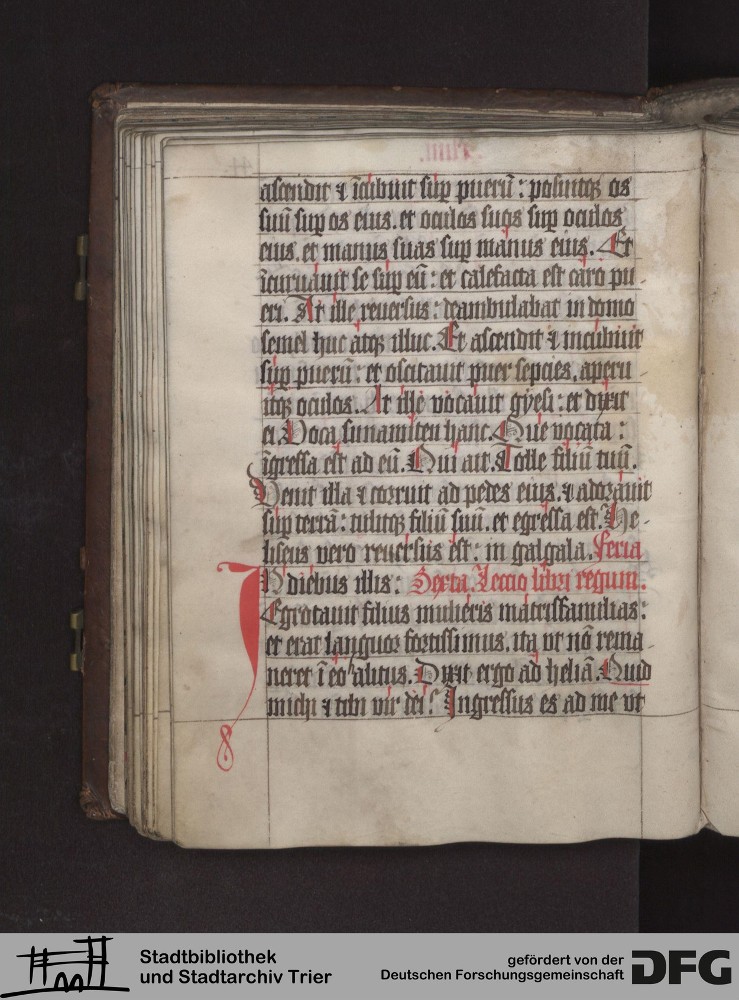 ascendit ⁊ īcubuit sup̱ puerū : posuitqꝫ os
suū sup̱ os eius. et oculos suos sup̱ oculos
eius. et manus suas sup̱ manus eius. Et
īcuruauit se sup̱ eū : et calefacta est caro pu-
eri. At ille reuersus : deambulabat in domo
semel huc atqꝫ illuc. Et ascendit ⁊ incubuit
sup̱ puerū : et oscitauit puer sepcies. aperu-
itqꝫ oculos. At ille vocauit gyesi : et dixit
ei. Voca sunamiten hanc. Que vocata :
īgressa est ad eū. Qui ait. Tolle filiū tuū.
Venit illa ⁊ corruit ad pedes eius. ⁊ adorauit
sup̱ terrā : tulitqꝫ filiū suū. et egressa est. He-
liseus vero reuersus est : in galgala. Feria
IN diebus illis : Sexta. Lectio libri regum.
Egrotauit filius mulieris matrisfamilias :
et erat languor fortissimus. ita vt nō rema-
neret ī eo alitus. Dixit ergo ad heliā. Quid
michi ⁊ tibi vir dei? Ingressus es ad me vt
Stadtbibliothek
und Stadtarchiv Trier
gefördert von der
Deutschen Forschungsgemeinschaft
DFG